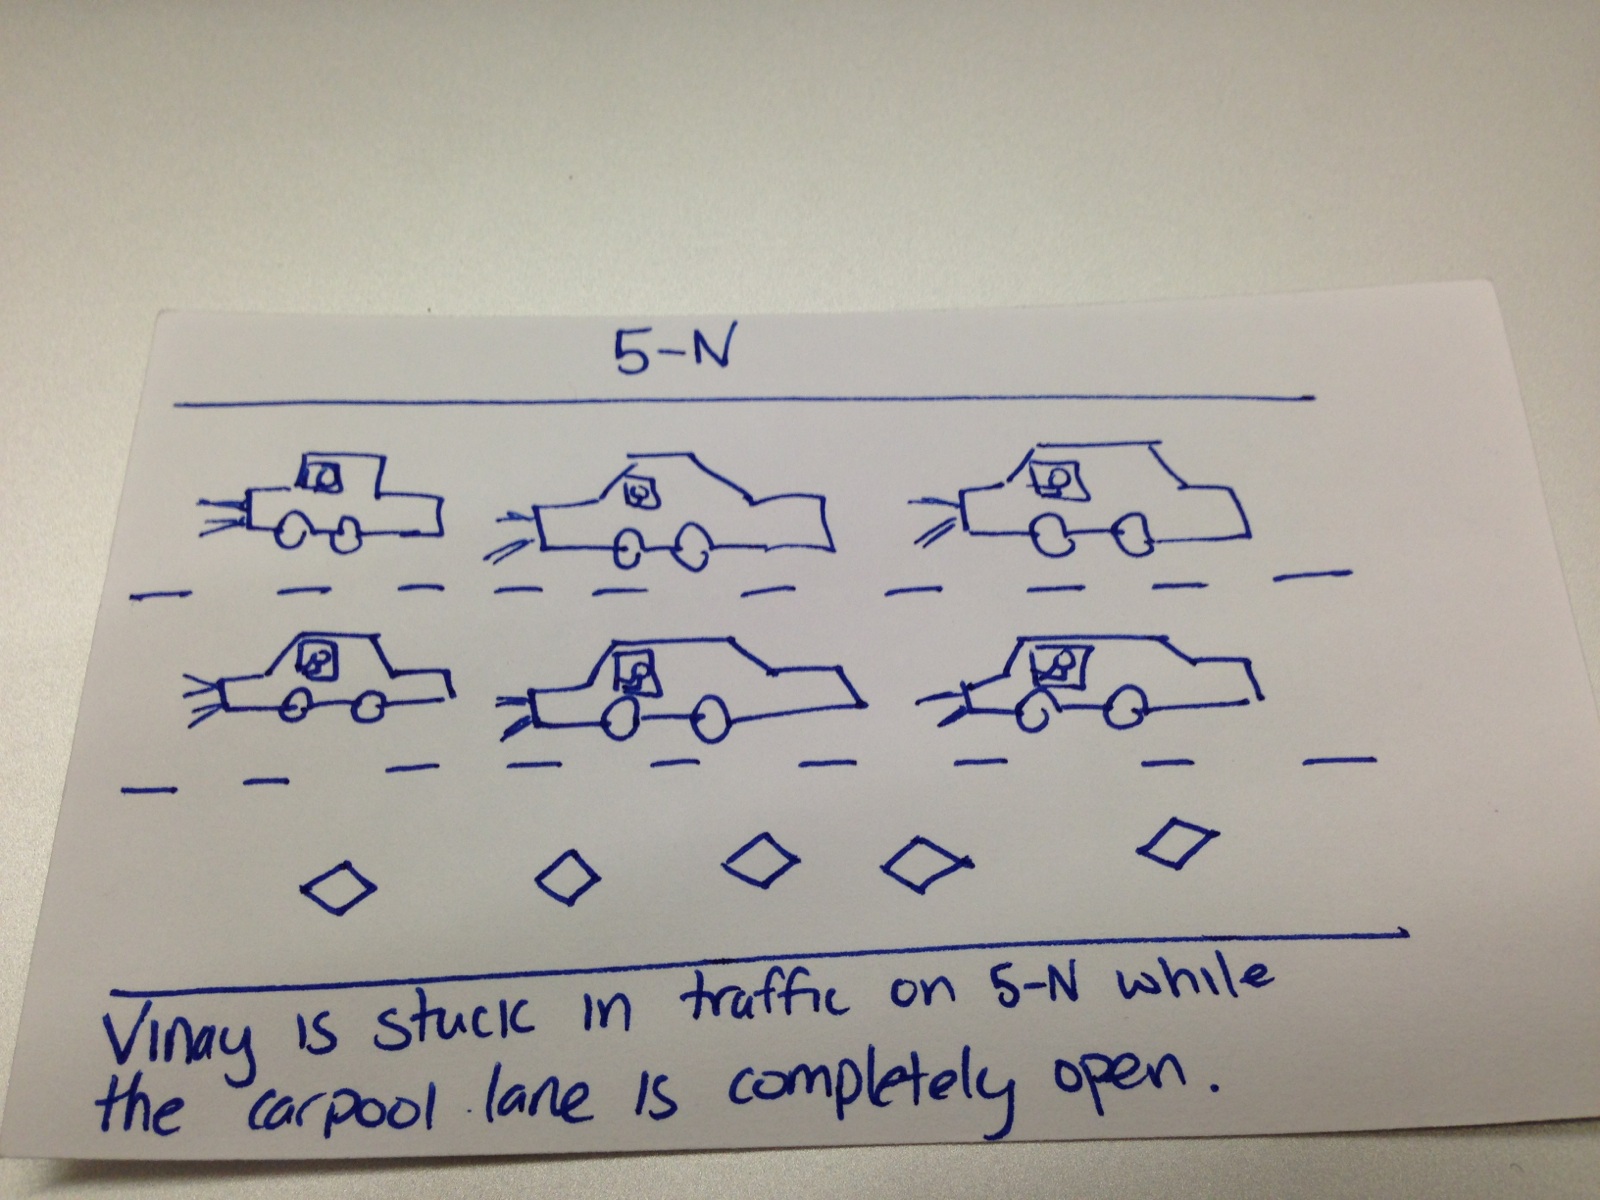 5-N
Vinay is stuck in traffic on 5-N while
the carpool lane is completely open.